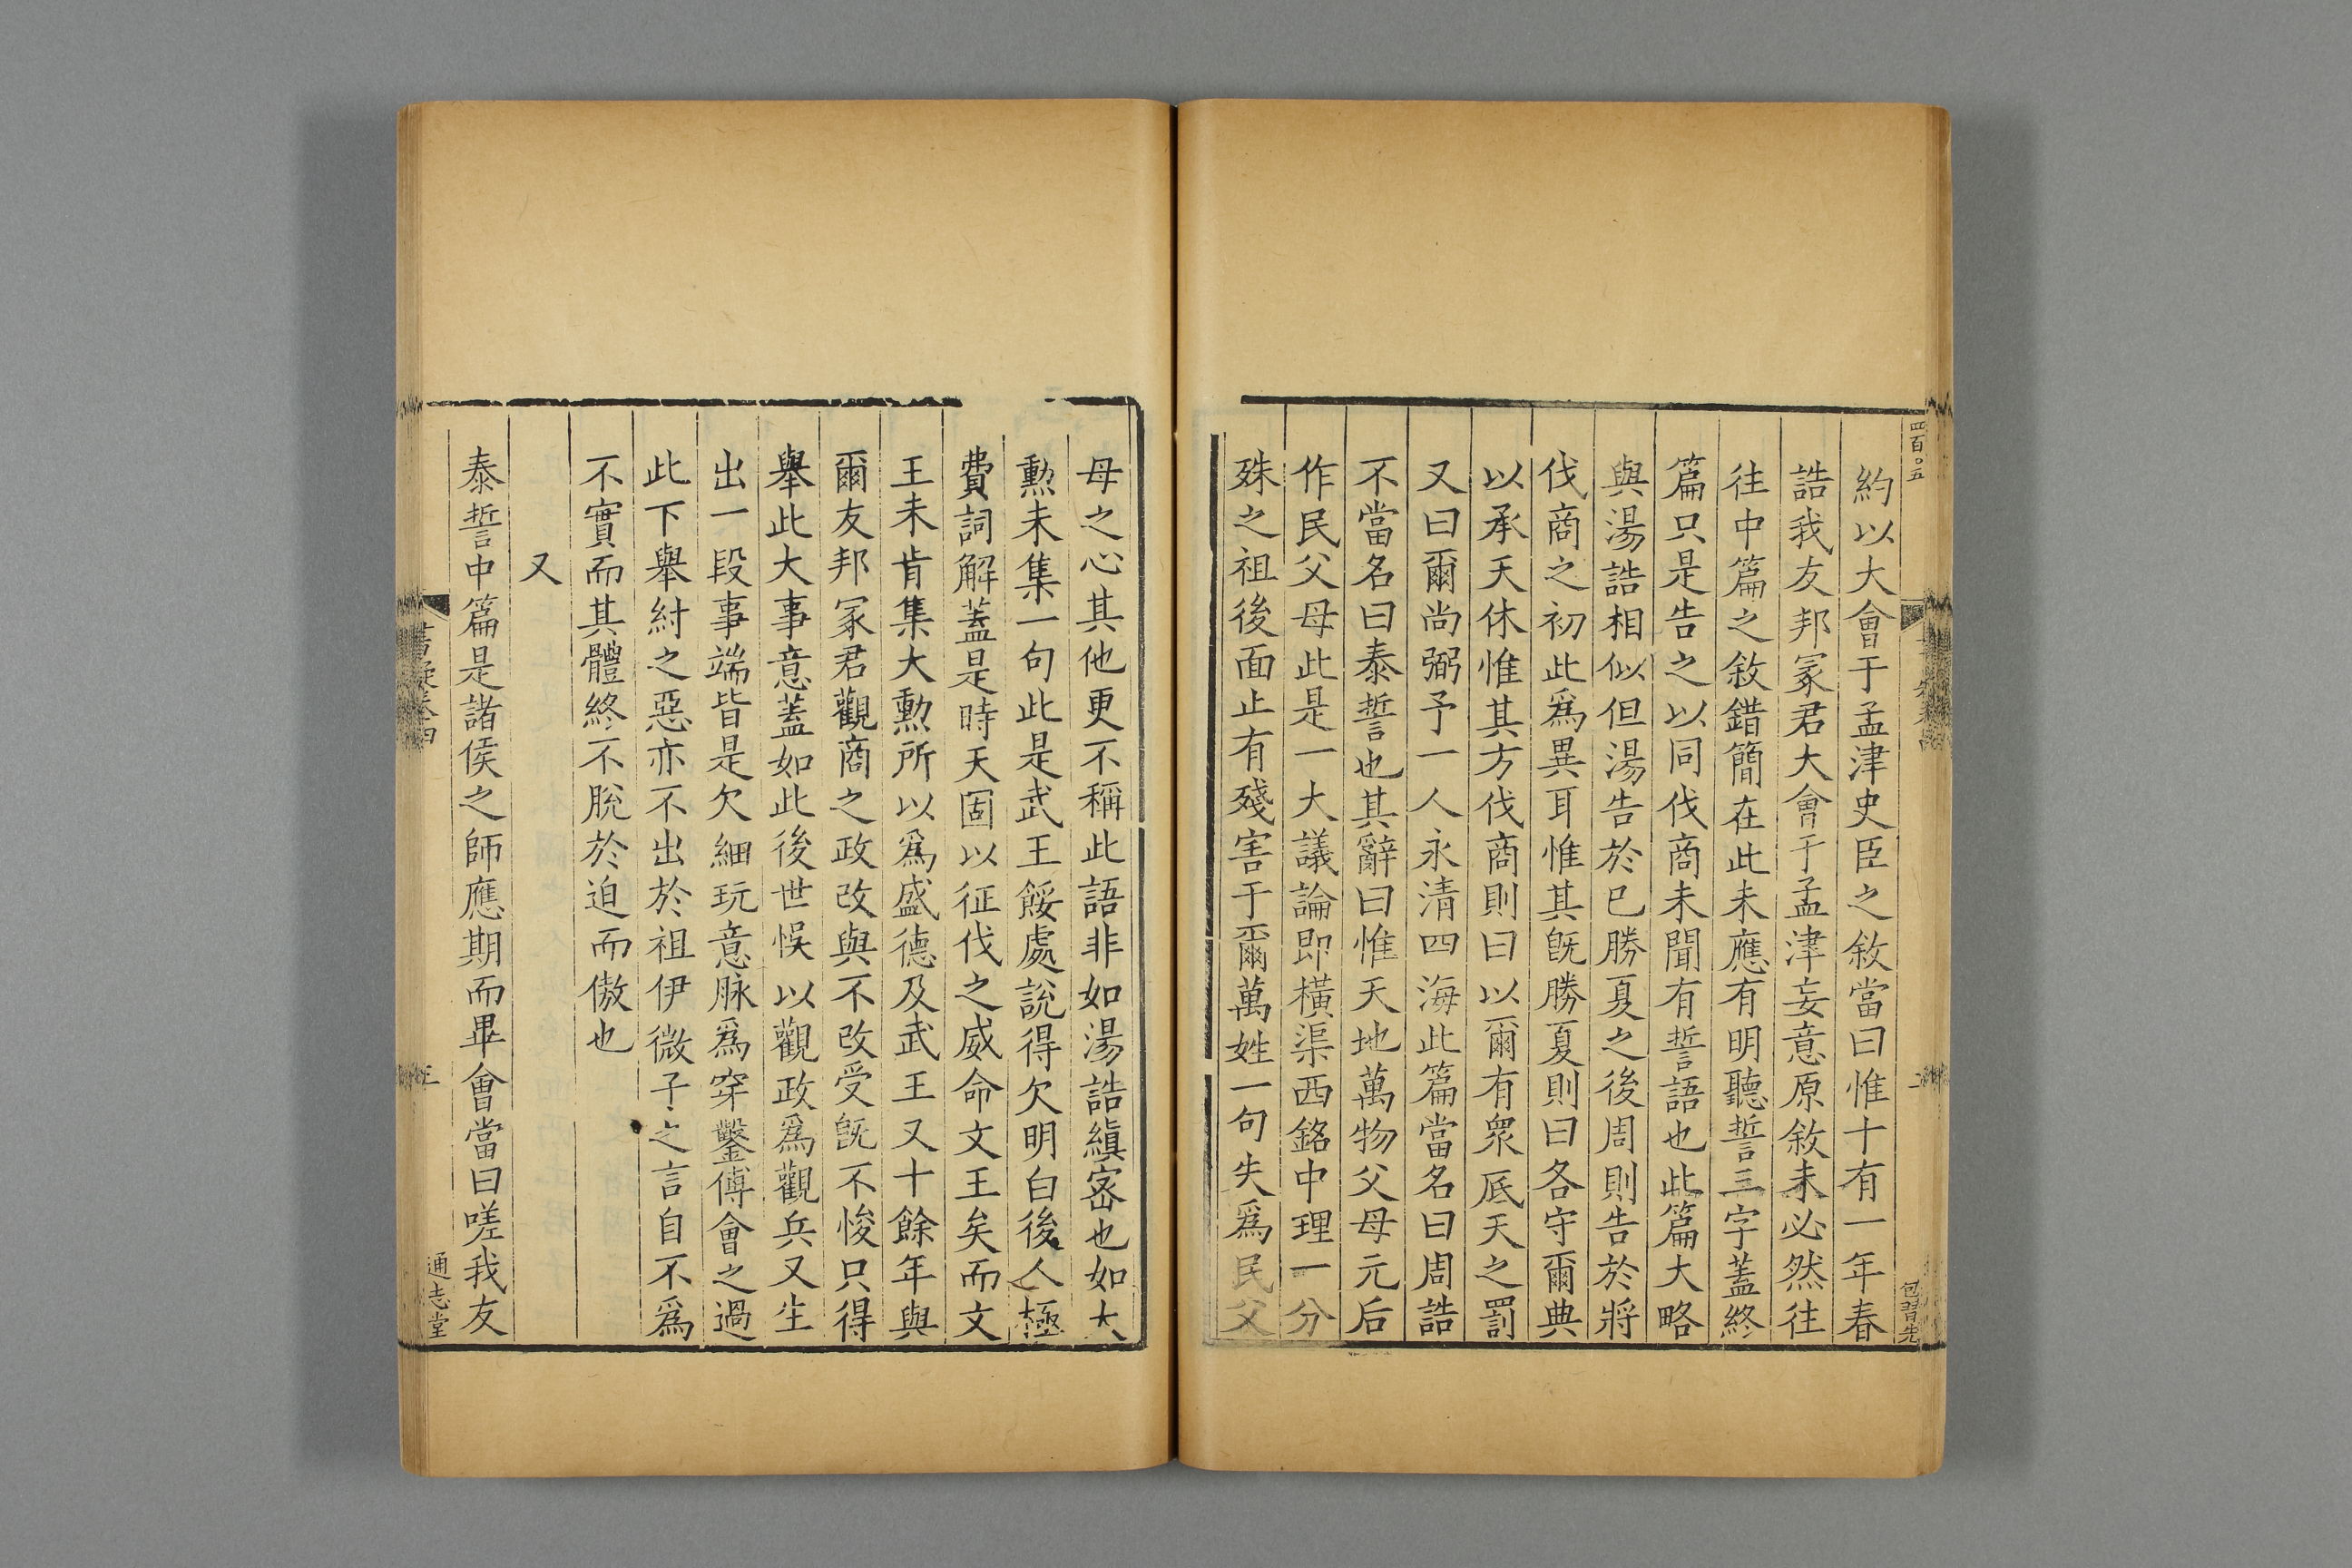 四百〇五
約以大會于孟津史臣之敘當曰惟十有一年春
誥我友邦冢君大會于孟津妄意原敘未必然往
往中篇之敘錯簡在此未應有明聽誓三字蓋終
篇只是告之以同伐商未聞有誓語也此篇大略
與湯誥相似但湯告於已勝夏之後周則告於將
伐商之初此爲異耳惟其旣勝夏則曰各守爾典
以承天休惟其方伐商則曰以爾有衆底天之罰
又曰爾尚弼予一人永清四海此篇當名曰周誥
不當名曰泰誓也其辭曰惟天地萬物父母元后
作民父母此是一大議論即橫渠西銘中理一分
殊之祖後面止有殘害于爾萬姓一句失爲民父
母之心其他更不稱此語非如湯誥縝宻也如大
勲未集一句此是武王餒處說得欠明白後人極
費詞解蓋是時天固以征伐之威命文王矣而文
王未肯集大勲所以爲盛德及武王又十餘年與
爾友邦冢君觀商之政改與不改受旣不悛只得
舉此大事意蓋如此後世悞以觀政爲觀兵又生
出一段事端皆是欠細玩意脉爲穿鑿傅會之過
此下舉紂之惡亦不出於祖伊微子之言自不爲
不實而其體終不脫於迫而傲也
又
泰誓中篇是諸侯之師應期而畢會當曰嗟我友
書疑卷四
通志堂